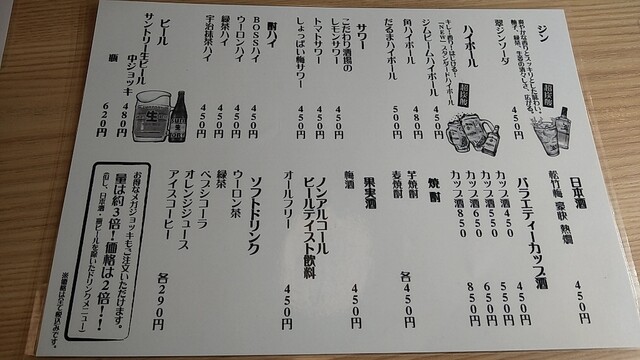 ジン
爽やかな香りとスッキリとした味わい。
柚子、緑茶、生姜の清々しさ、広がる。
翠ジンソーダ 450円
超炭酸
ハイボール
キレし香り！はじける！
「NEW」スタンダードハイボール
ジムビームハイボール 450円
角ハイボール 480円
だるまハイボール 500円
超炭酸
サワー
こだわり酒場の
レモンサワー 450円
トマトサワー 450円
しょっぱい梅サワー 450円
酎ハイ
BOSSハイ 450円
ウーロンハイ 450円
緑茶ハイ 450円
宇治抹茶ハイ 450円
ビール
サントリー生ビール
中ジョッキ 480円
瓶 620円
日本酒
松竹梅 豪快 熱燗 450円
バラエティーカップ酒
カップ酒450 450円
カップ酒550 550円
カップ酒650 650円
カップ酒850 850円
焼酎
芋焼酎
麦焼酎 各450円
果実酒
梅酒 450円
ノンアルコール
ビールテイスト飲料
オールフリー 450円
ソフトドリンク
ウーロン茶
緑茶
ペプシコーラ
オレンジジュース
アイスコーヒー 各290円
お得なメガジョッキもご注文いただけます。
量は約3倍！価格は2倍！！
（但し、日本酒・瓶ビールを除いたドリンクメニュー）
※価格は全て税込みです。